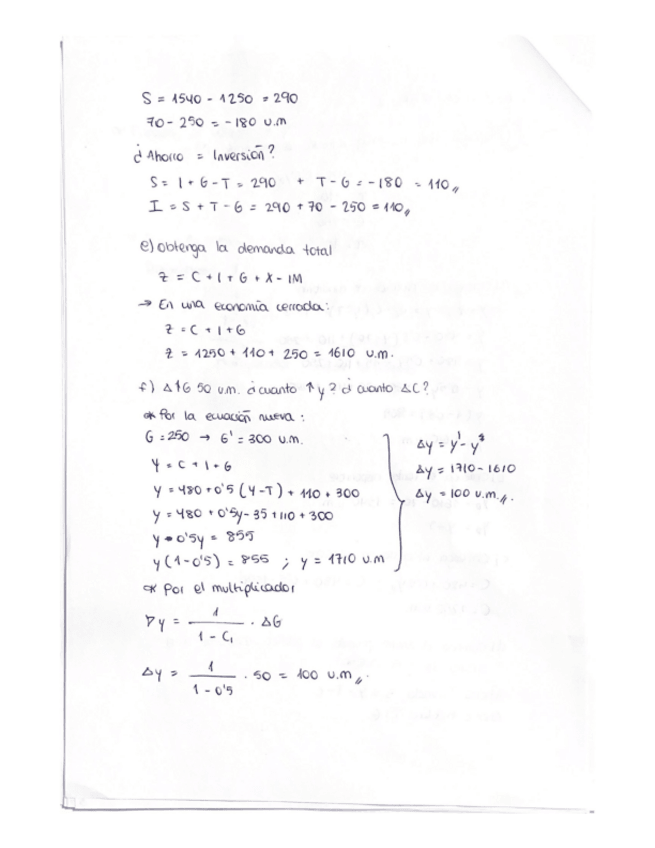 S = 1540 - 1250 = 290
70 - 250 = -180 u.m
¿ Ahorro = Inversión?
S = I + G - T = 290 + T - G = -180 = 110,,
I = S + T - G = 290 + 70 - 250 = 110,,
e) obtenga la demanda total
Z = C + I + G + X - IM
→ En una economía cerrada:
Z = C + I + G
Z = 1250 + 110 + 250 = 1610 u.m.
f) Δ↑G 50 u.m. ¿ cuanto ↑ y? ¿ cuanto ΔC?
* Por la ecuación nueva:
G = 250 → G' = 300 u.m.
Y = C + I + G
Y = 480 + 0'5 (Y - T) + 110 + 300
Y = 480 + 0'5y - 35 + 110 + 300
y - 0'5y = 855
y (1 - 0'5) = 855 ; y = 1710 u.m
Δy = y' - y*
Δy = 1710 - 1610
Δy = 100 u.m.,,
* Por el multiplicador
∇y = 1 / 1 - C₁ · ΔG
Δy = 1 / 1 - 0'5 · 50 = 100 u.m,,.